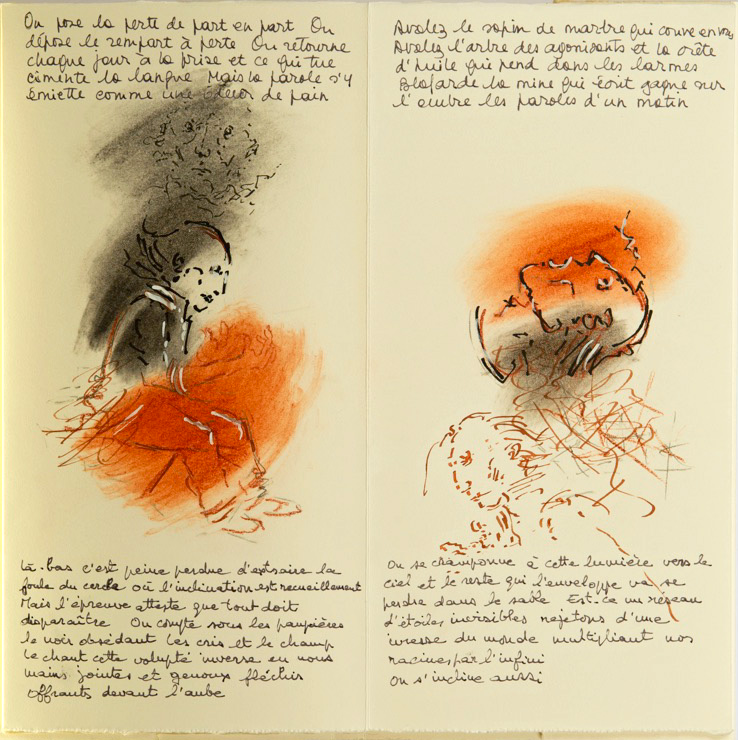 On pose la perte de part en part On
dépose le rempart à perte On retourne
chaque jour à la prise et ce qui tue
cimente la langue Mais la parole s'y
émiette comme une fleur de pain
Là-bas c'est peine perdue d'extraire la
foule du cercle où l'inclination est recueillement
Mais l'épreuve atteste que tout doit
disparaître On compte sous les paupières
le noir obsédant les cris et le champ
Le chant cette volupté inverse en nous
mains jointes et genoux fléchis
offrants devant l'aube
Avalez le sapin de marbre qui couve en vous
Avalez l'arbre des agonisants et la crête
d'huile qui pend dans les larmes
Blafarde la mine qui écrit gagne sur
l'ombre les paroles d'un matin
On se cramponne à cette lumière vers le
ciel et le reste qui l'enveloppe va se
perdre dans le sable Est-ce un réseau
d'étoiles invisibles rejetons d'une
ivresse du monde multipliant nos
racines par l'infini
On s'incline aussi